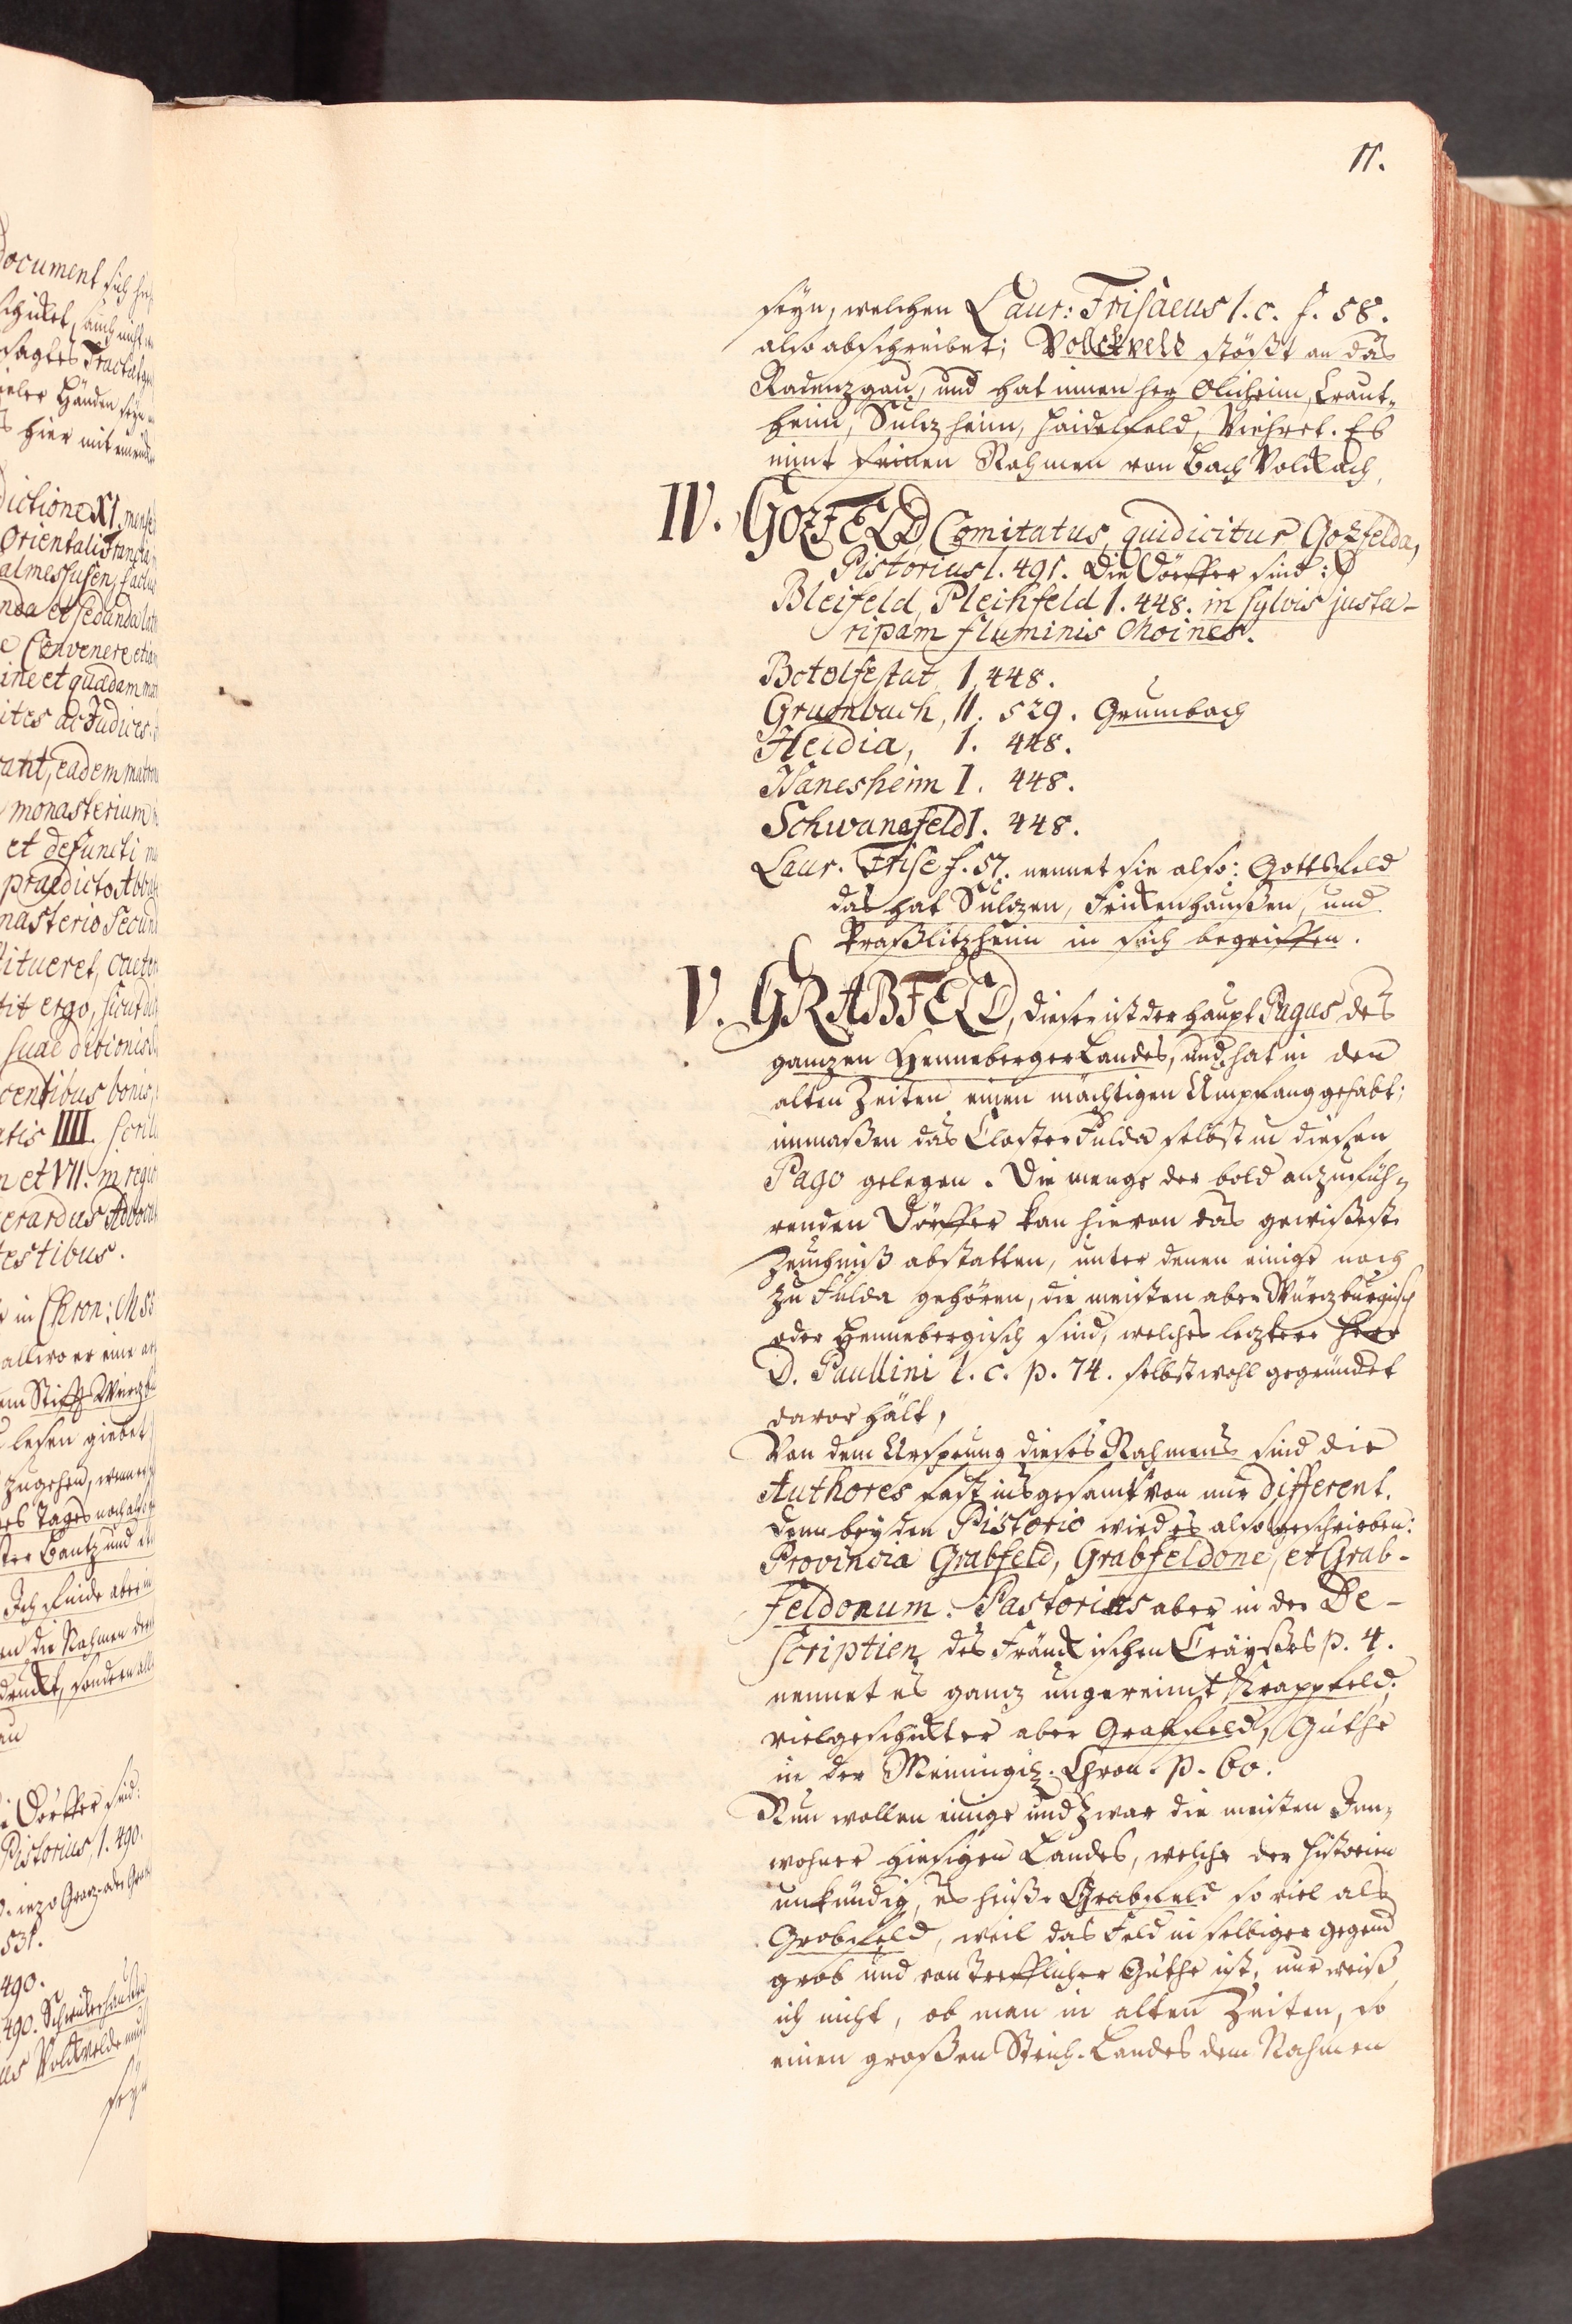 11.
seyn, welchen Laur: Frisaeus l. c. f. 58.
also abschreibet; Volckveld stößt an das
Radenzgau, und hat innen her Olicheim, Kraut-
heim, Sulzheim, Haidelfeld, Viehret. Es
nimt seinen Nahmen von Bach Volckach,
IV. GOZFELD, Comitatus, qui dicitur Gotzfelda,
Pistorius l. 491. Die Dörffer sind:
Bleifeld, Pleihfeld I. 448. in sylvis justa-
ripam fluminis Moines.
Botolfestat, I. 448.
Grumbach, II. 529. Grumbach
Heidia, I. 448.
Hanesheim I. 448.
Schwanefeld I. 448.
Laur. Frise f. 57. nennet sie also: Gottsfeld
das hat Sulzen, Frickenhaußen, und
Praßlitzheim in sich begriffen.
V. GRABFELD, dieser ist der Haupt Pagus des
ganzen Henneberger Landes, und hat in den
alten Zeiten einen mächtigen Umpfang gehabt;
immaßen das Closter Fulda selbst in diesen
Pago gelegen. Die menge der bald anzufüh-
renden Dörffer kan hievon das gewißeste
Zeuchniß abstatten, unter denen einige noch
zu Fulda gehören, die meisten aber Würzburgisch
oder Hennebergisch sind, welches leztere Herr
D. Paullini l. c. p. 74. selbst wohl gegründet
davor hält,
Von dem Ursprung dieses Nahmens sind die
Authores fast insgesamt von mir different.
Denn bey den Pistorio wird es also geschrieben:
Provincia Grabfeld, Grabfeldone, et Grab-
feldonum. Pastorius aber in der De-
scription des Fränckischen Crayßes p. 4.
nennet es ganz ungereimt Krappfeld;
vielgeschickter aber Graffeld, Güthe
in der Meiningis. Chron. p. 60.
Nun wollen einige und zwar die meisten Inn-
wohner hiesigen Landes, welche der Historien
unkündig, es heiße Grabfeld so viel als
Grobfeld, weil das Feld in selbiger gegend
grob und von trefflicher Güthe ist, nur weiß
ich nicht, ob man in alten Zeiten, so
einen großen Strich Landes dem Nahmen